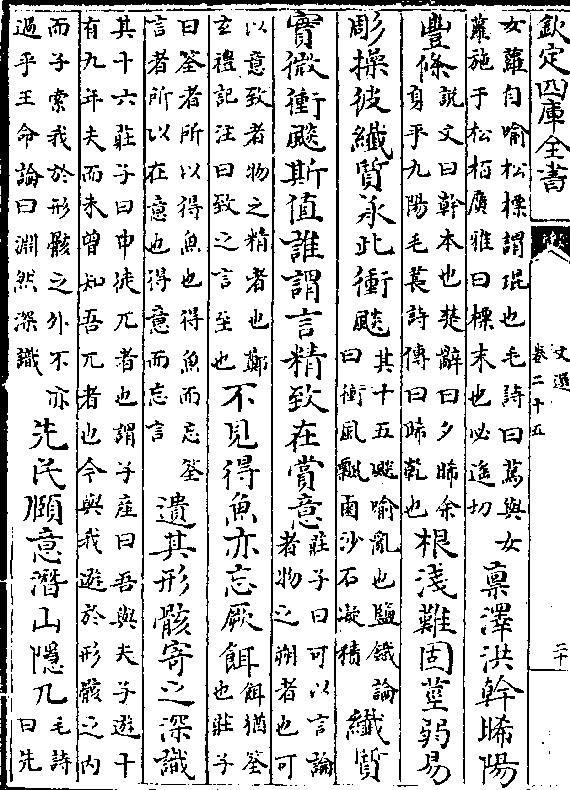 欽定四庫全書
文選
卷二十五
二十
女蘿自喻松標謂琨也毛詩曰蔦與女
蘿施于松栢廣雅曰標末也必遥切
稟澤洪幹晞陽
豐條
説文曰幹本也楚辭曰夕晞余
身乎九陽毛萇詩傳曰晞乾也
根淺難固莖弱易
彫操彼纖質承此衝飈
其十五飈喻亂也鹽鐵論
曰衝風飄鹵沙石凝積
纖質
實微衝飈斯值誰謂言精致在賞意
莊子曰可以言論
者物之粗者也可
以意致者物之精者也鄭
玄禮記注曰致之言至也
不見得魚亦忘厥餌
餌猶筌
也莊子
曰筌者所以得魚也得魚而忘筌
言者所以在意也得意而忘言
遺其形骸寄之深識
其十六莊子曰申徒兀者也謂子產曰吾與夫子遊十
有九年夫而未曾知吾兀者也今與我遊於形骸之内
而子索我於形骸之外不亦
過乎王命論曰淵然深識
先民頤意潛山隱几
毛詩
曰先